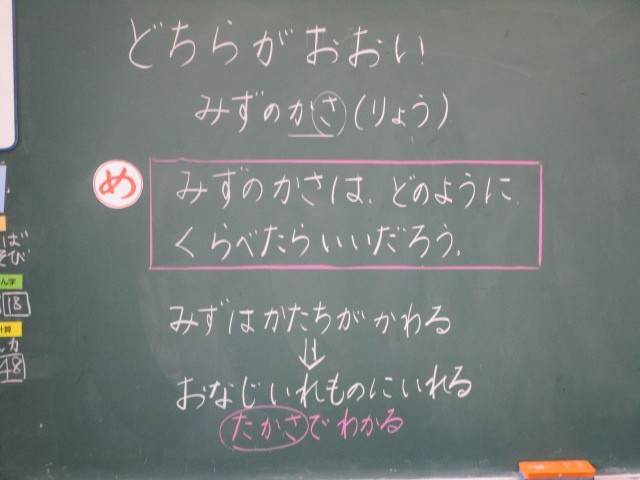 どちらがおおい
みずのかさ(りょう)
め
みずのかさは、どのように、
くらべたらいいだろう。
みずはかたちがかわる
⇓
おなじいれものにいれる
たかさでわかる
18
48